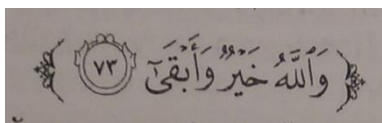 وَٱللَّهُ خَيْرٌ وَأَبْقَىٰٓ ٧٣